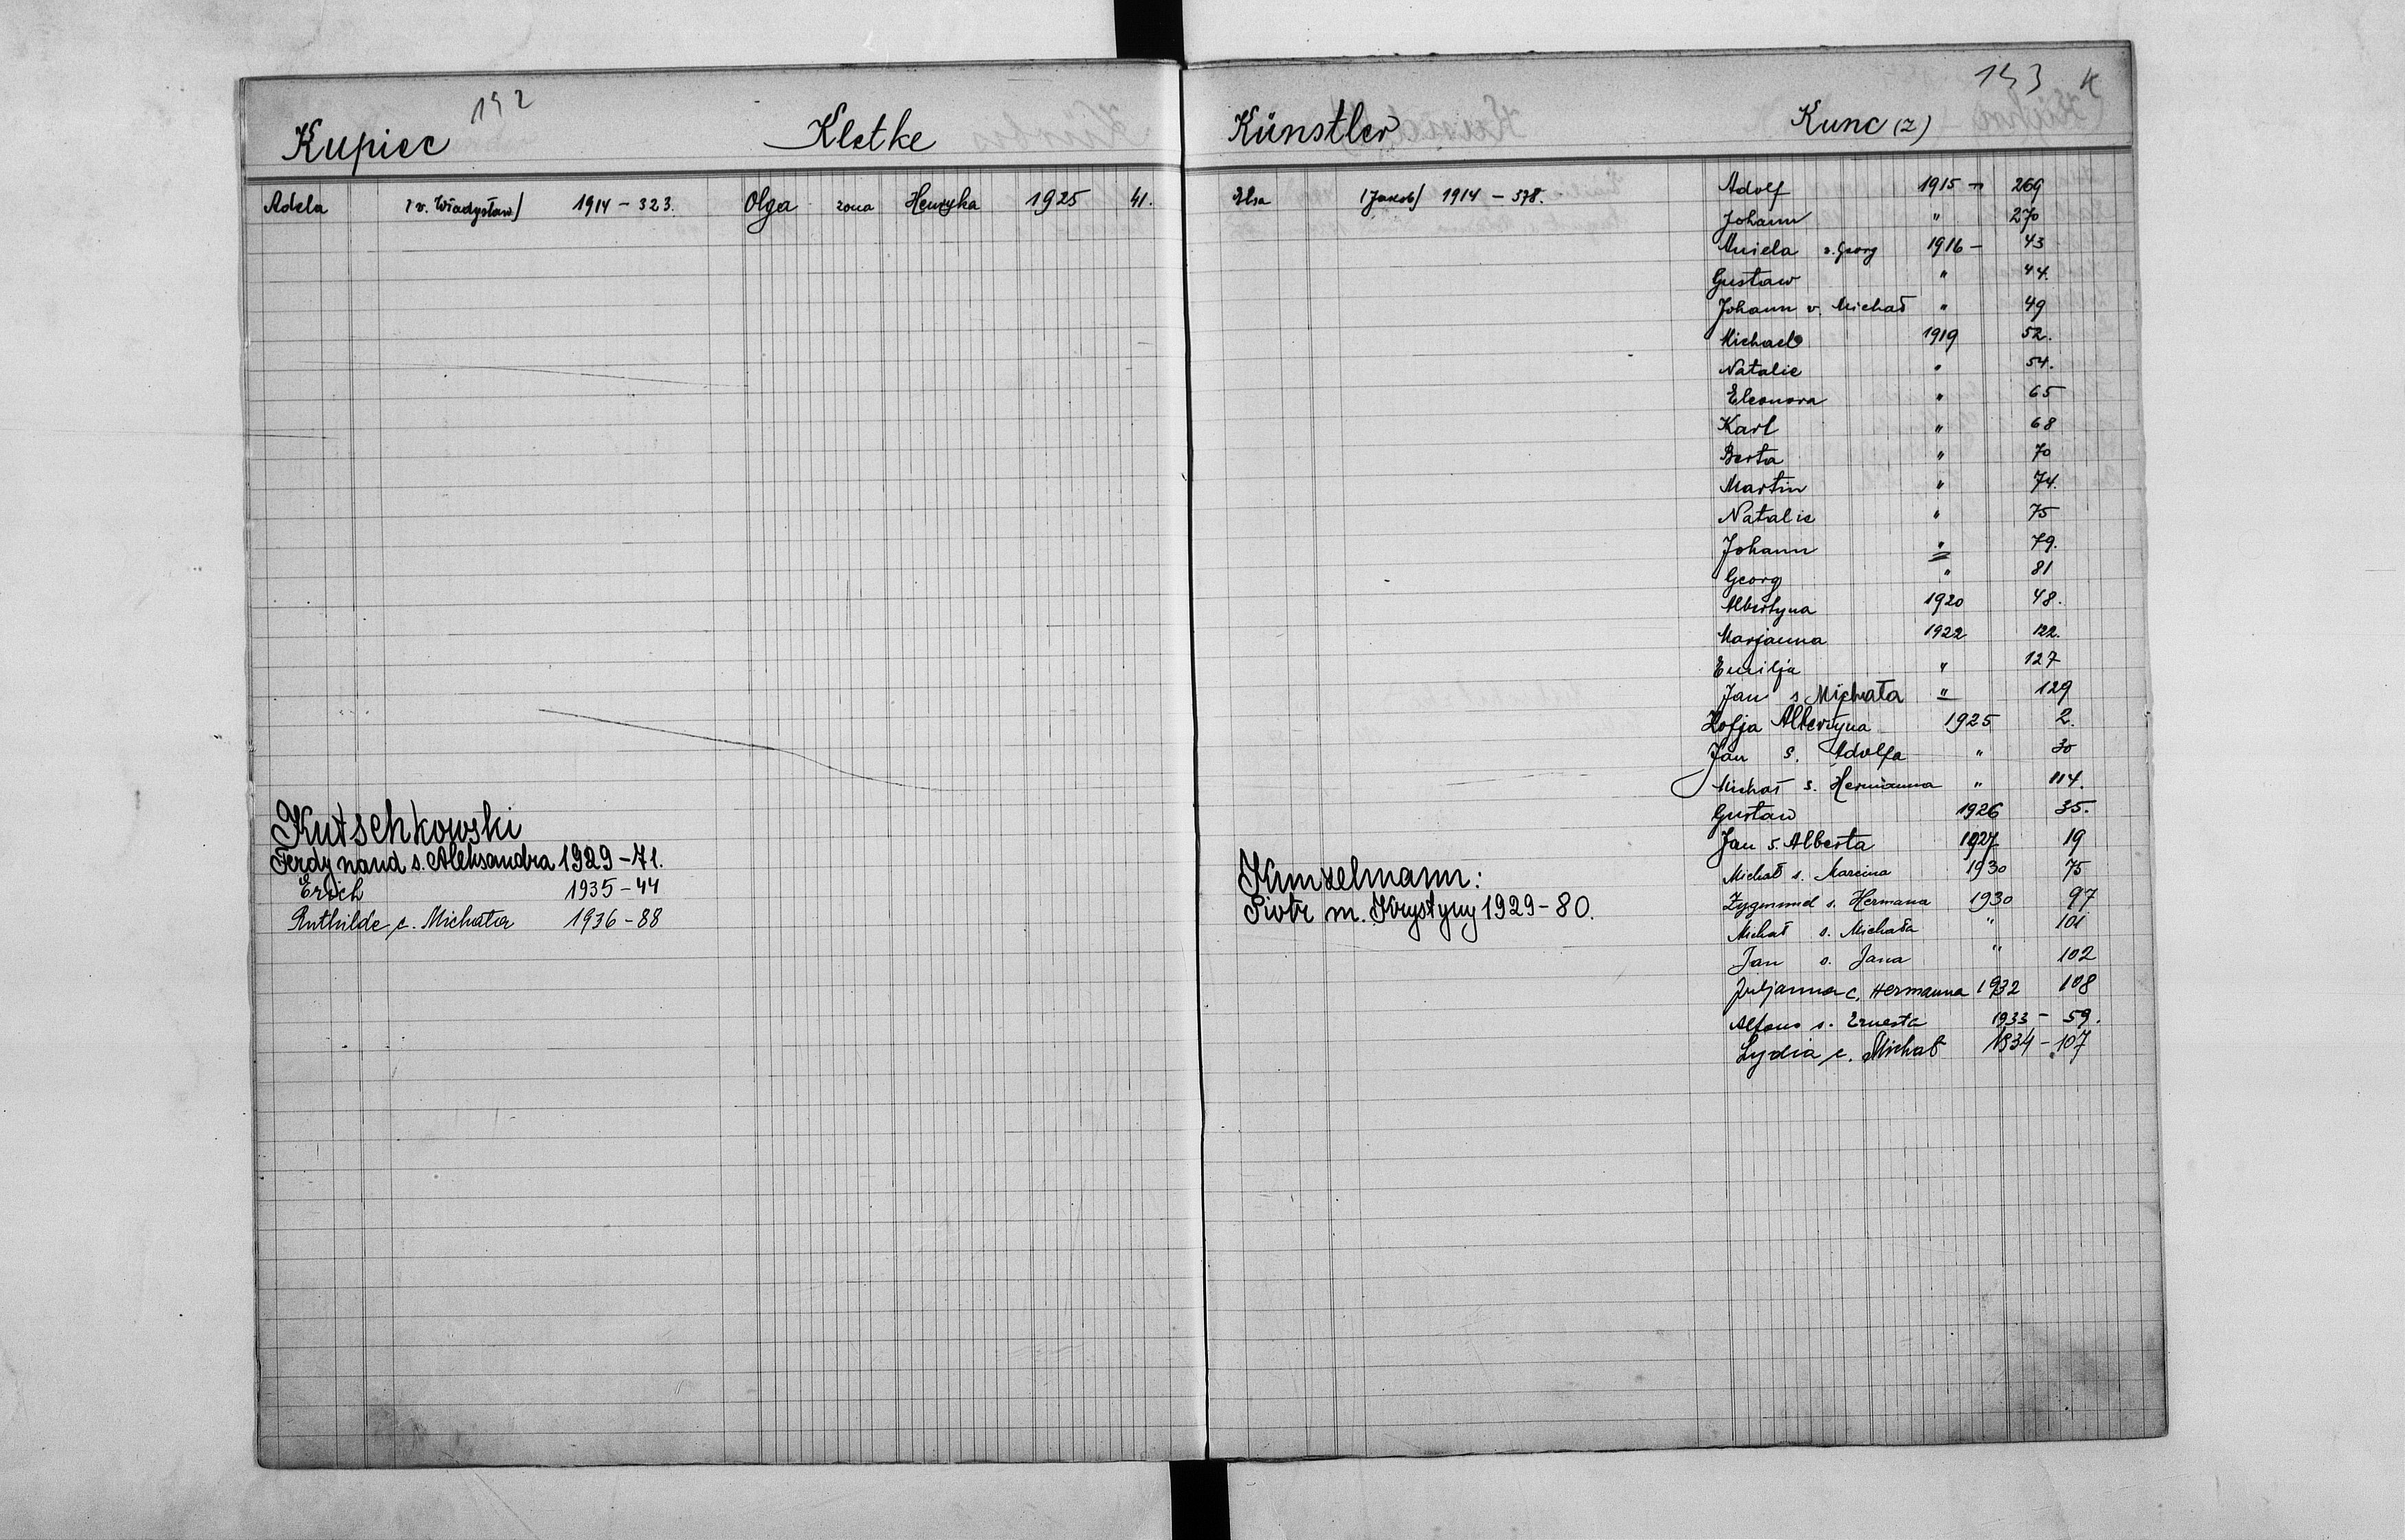 142
Kupiec
Adela /v. Władysław/ 1914 - 323.
Kutschkowski
Ferdynand s. Aleksandra 1929 - 71.
Erich 1935 - 44
Ruthilde c. Michała 1936 - 88
Kletke
Olga żona Henryka 1925 41.
Künstler
Elsa /Jakob/ 1914 - 378.
Kunzelmann:
Piotr m. Krystyny 1929 - 80.
143 K
Kunc (z)
Adolf 1915 - 269
Johann " 270
Aniela v. Georg 1916 - 43
Gustaw " 44.
Johann v. Michał " 49
Michael 1919 52.
Natalie " 54.
Eleonora " 65
Karl " 68
Berta " 70
Martin " 74.
Natalie " 75
Johann " 79.
Georg " 81
Albertyna 1920 48.
Marjanna 1922 122.
Emilja " 127
Jan s Michała " 129
Zofja Albertyna 1925 2.
Jan s. Adolfa " 30
Michał s. Hermanna " 114.
Gustaw 1926 35.
Jan s. Alberta 1927 19
Michał s. Marcina 1930 75
Zygmund s. Hermana 1930 97
Michał s. Michała " 101
Jan s. Jana " 102
Juljanna c. Hermanna 1932 108
Alfons s. Ernesta 1933 - 59.
Lydia c. Michał 1934 - 107